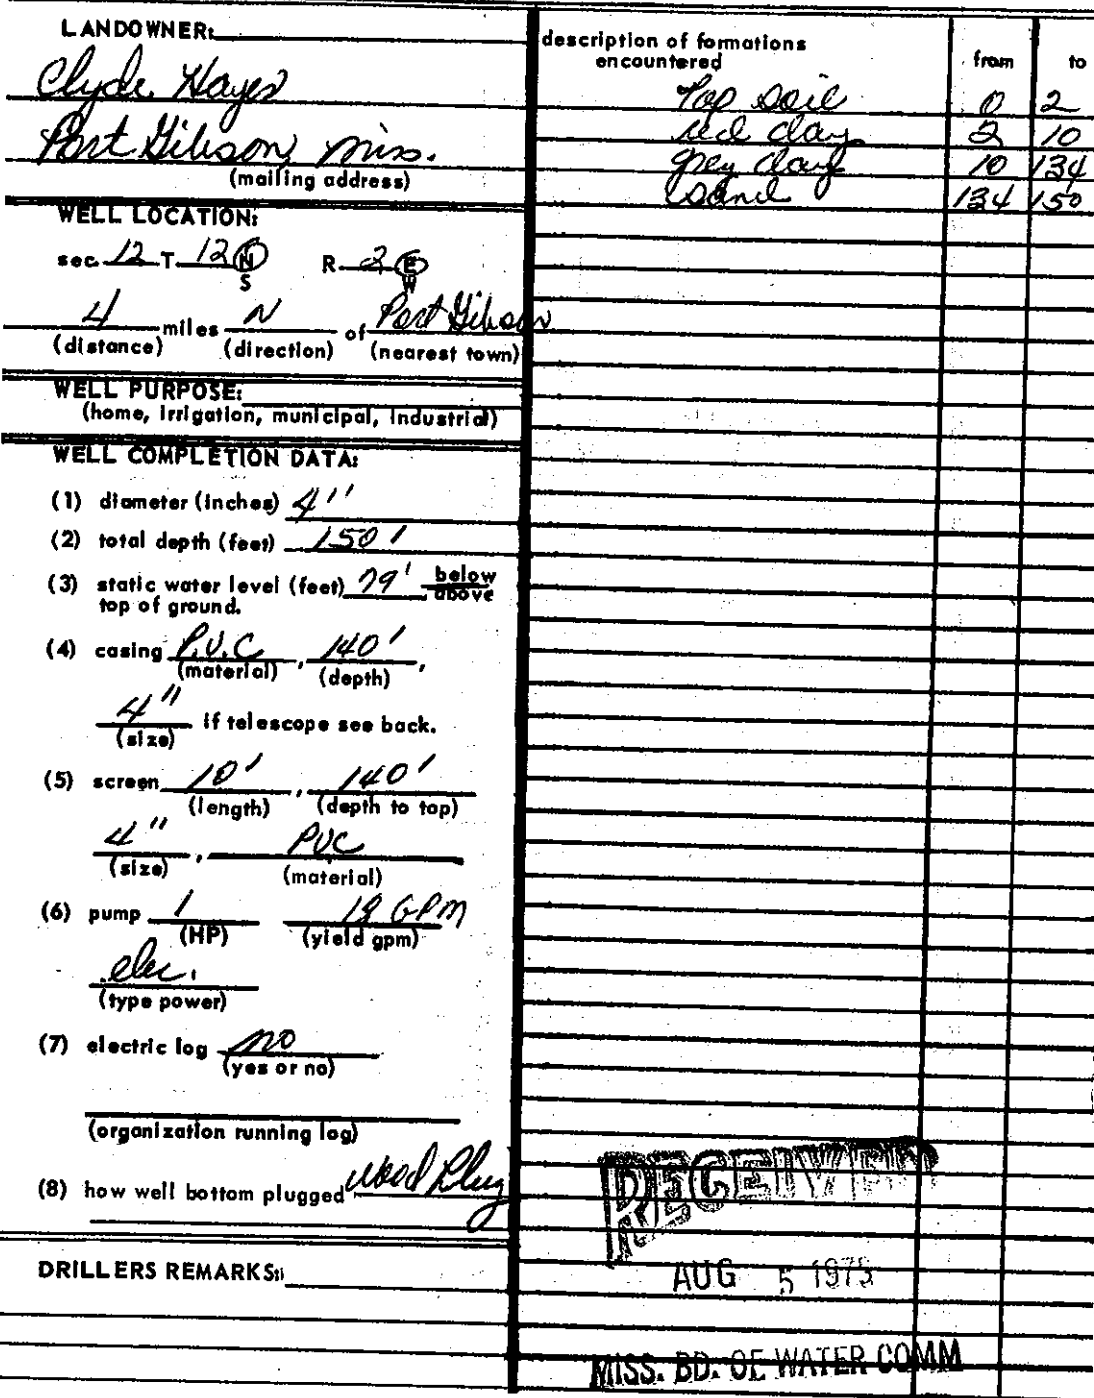 LANDOWNER:
Clyde Hayes
Port Gibson, Miss.
(mailing address)
WELL LOCATION:
sec. 12 T. 12 N R. 2 E
S W
4 miles N of Port Gibson
(distance) (direction) (nearest town)
WELL PURPOSE:
(home, irrigation, municipal, industrial)
WELL COMPLETION DATA:
(1) diameter (inches) 4"
(2) total depth (feet) 150'
(3) static water level (feet) 79' below
above
top of ground.
(4) casing P.V.C, 140',
(material) (depth)
4" if telescope see back.
(size)
(5) screen 10', 140'
(length) (depth to top)
4", PVC
(size) (material)
(6) pump 1 18 GPM
(HP) (yield gpm)
elec.
(type power)
(7) electric log no
(yes or no)
(organization running log)
(8) how well bottom plugged Wood Plug
DRILLERS REMARKS:
description of formations
encountered from to
Top soil 0 2
red clay 2 10
grey clay 10 134
sand 134 150
RECEIVED
AUG 5 1975
MISS. BD. OF WATER COMM